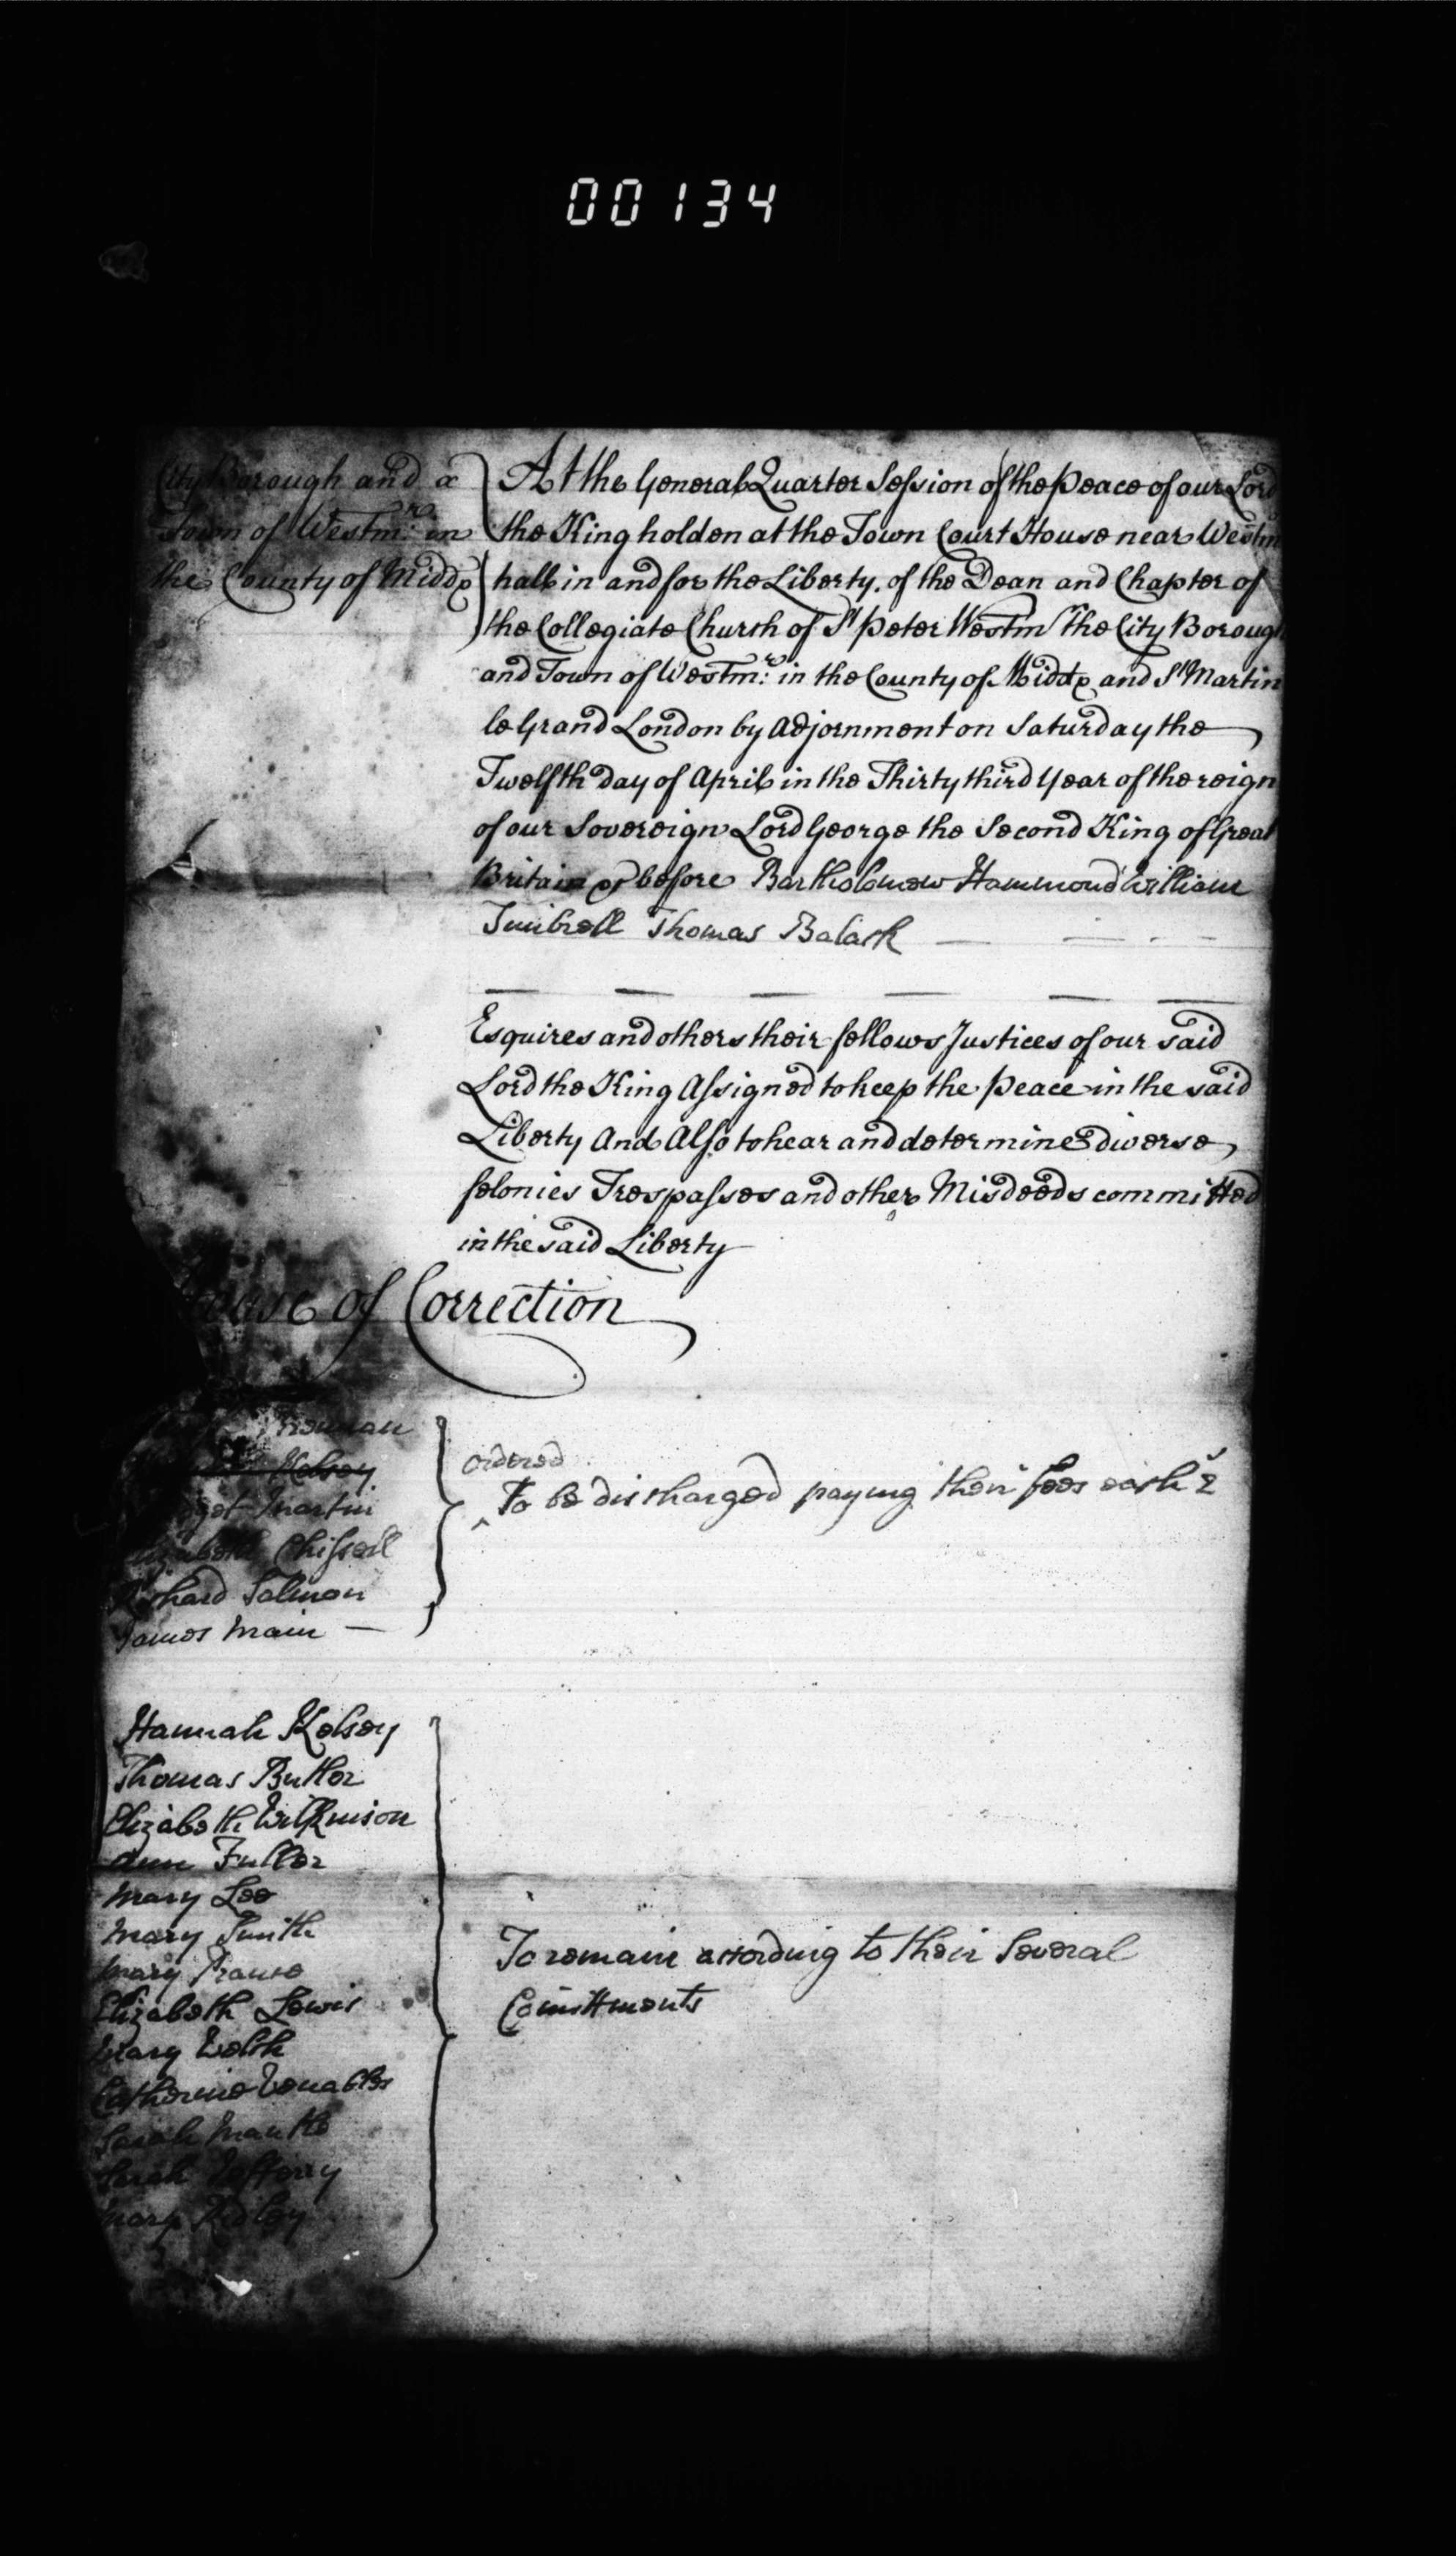 00134
City Borough and a
Town of Westm:r in
the County of Middx
At the General Quarter Session of the Peace of our Lord
the King holden at the Town Court House near Westm
hall in and for the Liberty of the Dean and Chapter of
the Collegiate Church of St Peter Westmr the City Borough
and Town of Westm:r in the County of Middx and St Martin
le Grand London by Adjornment on Saturday the
Twelfth day of April in the Thirty third Year of the reign
of our Sovereign Lord George the Second King of Great
Britain &c before Bartholomew Hammond William
Timbrell Thomas Balack
Esquires and others their fellows Justices of our said
Lord the King Assigned to keep the Peace in the said
Liberty And Also to hear and determine diverse
felonies Trespasses and other Misdeeds committed
in the said Liberty
House of Correction
Kelsey
Martin
Elizabeth Chissell
Richard Salmon
James Main
ordered
To be discharged paying their fees each
Hannah Kelsey
Thomas Butler
Elizabeth Wilkinson
Ann Fuller
Mary Lee
Mary Smith
Mary
Elizabeth Lewis
Mary Welch
Catherine Venables
Sarah Mantle
Sarah Jefferry
Mary Ridley
To remain according to their several
Comittments